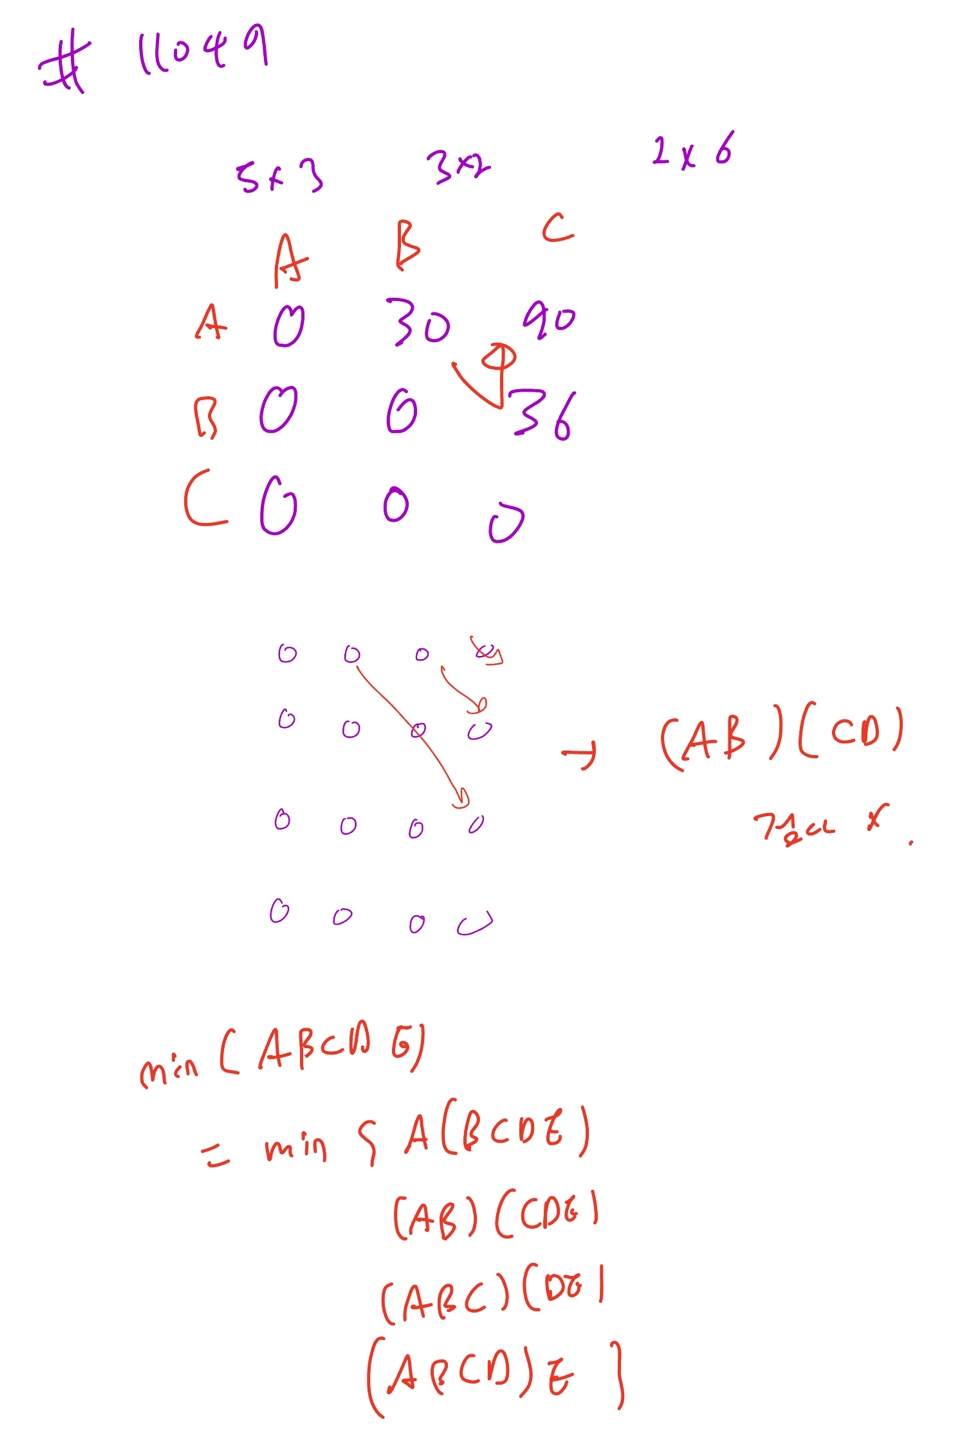 # 11049
5 x 3 3 x 2 2 x 6
A B C
A 0 30 90
B 0 0 36
C 0 0 0
0 0 0 0
0 0 0 0
→ (AB)(CD)
0 0 0 0
0 0 0 0
min (ABCDE)
= min { A(BCDE)
(AB)(CDE)
(ABC)(DE)
(ABCD)E }